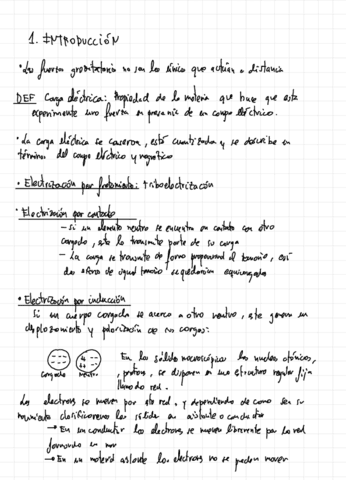 1. INTRODUCCIÓN
• Las fuerzas gravitatorias no son las únicas que actúan a distancia
DEF Carga eléctrica: Propiedad de la materia que hace que esta
experimente una fuerza en presencia de un campo eléctrico.
• La carga eléctrica se conserva, está cuantizada y se describe en
términos del campo eléctrico y magnético
• Electrización por frotamiento: triboelectrización
• Electrización por contacto
– Si un elemento neutro se encuentra en contacto con otro
cargado, este le transmite parte de su carga
– La carga se transmite de forma proporcional al tamaño, así
dos esferas de igual tamaño se quedarían equicargadas
• Electrización por inducción
Si un cuerpo cargado se acerca a otro neutro, este genera un
desplazamiento y polarización de sus cargas:
Cargado Neutro
En los sólidos macroscópicos los núcleos atómicos,
protones, se disponen en una estructura regular fija
llamada red.
Los electrones se mueven por esta red y dependiendo de como sea su
movimiento clasificaremos los sólidos en aislante o conductor
→ En un conductor los electrones se mueven libremente por la red
formando un mar
→ En un material aislante los electrones no se pueden mover